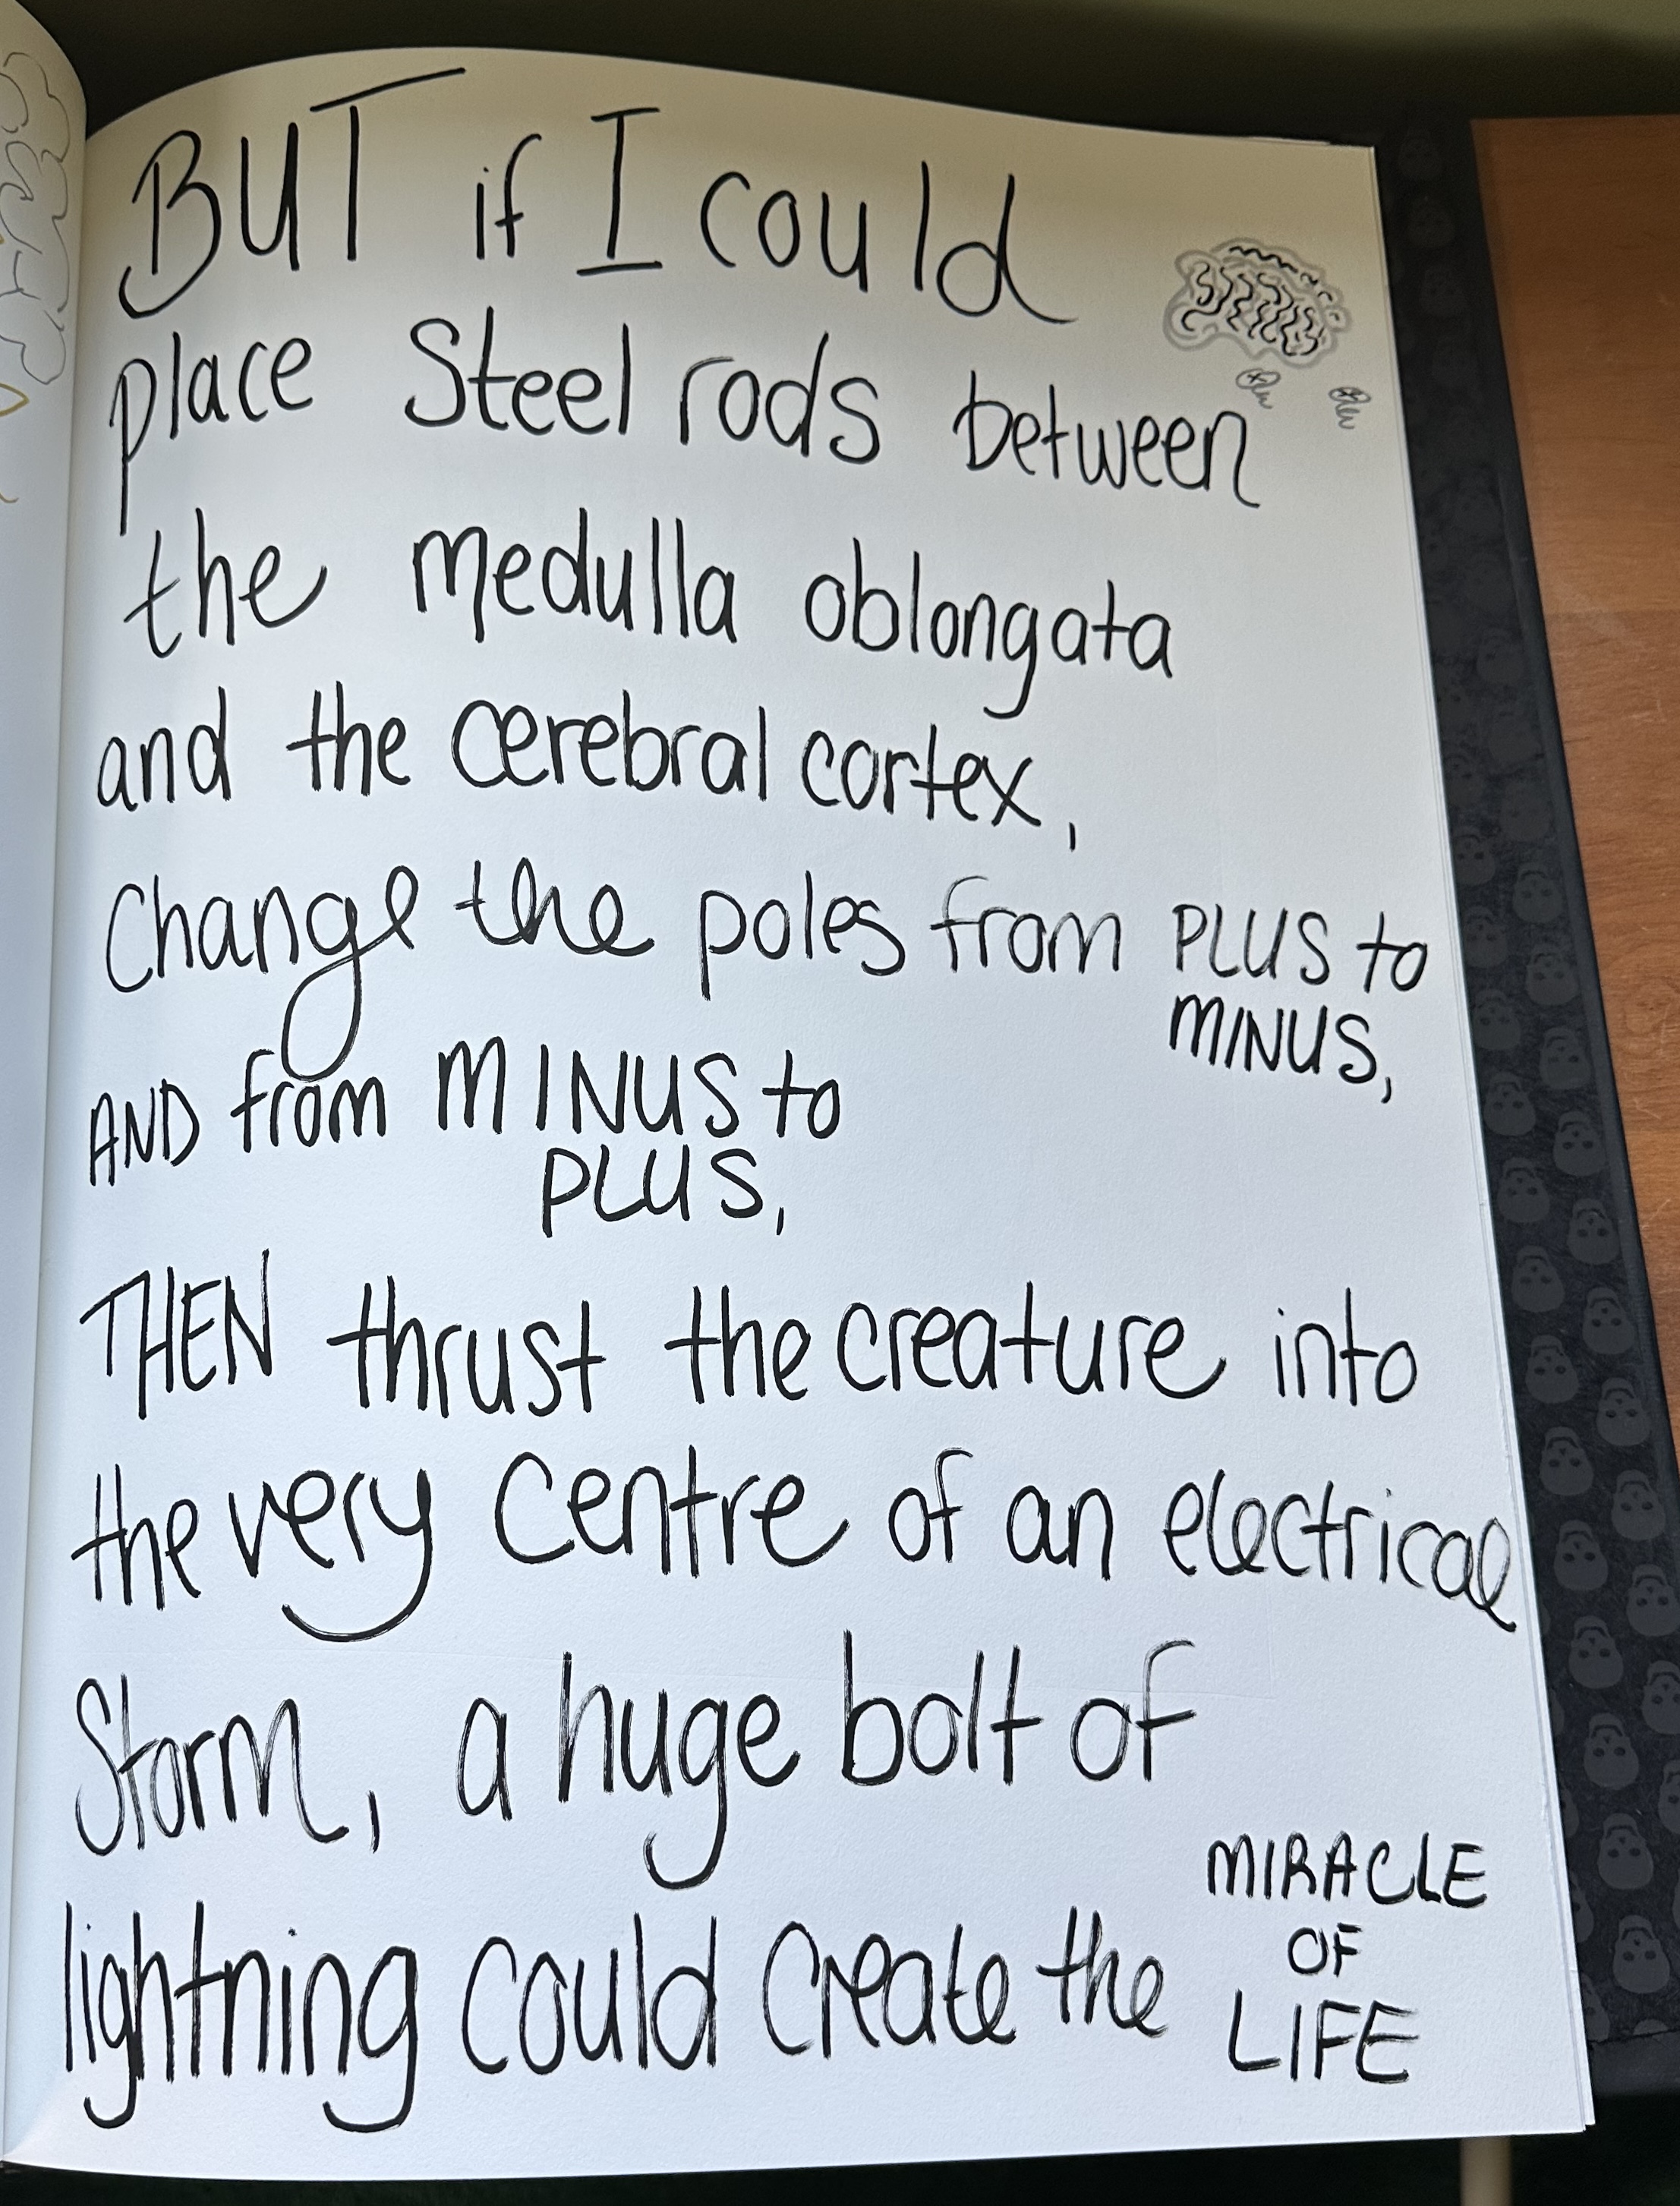 BUT if I could
place Steel rods between
the medulla oblongata
and the cerebral cortex,
Change the poles from PLUS to
MINUS,
AND from MINUS to
PLUS,
THEN thrust the creature into
the very centre of an electrical
Storm, a huge bolt of
lightning could create the MIRACLE
OF
LIFE